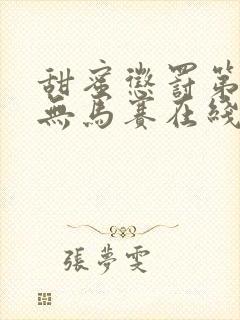 甜蜜懲罰第
無馬賽在綫
張夢雯